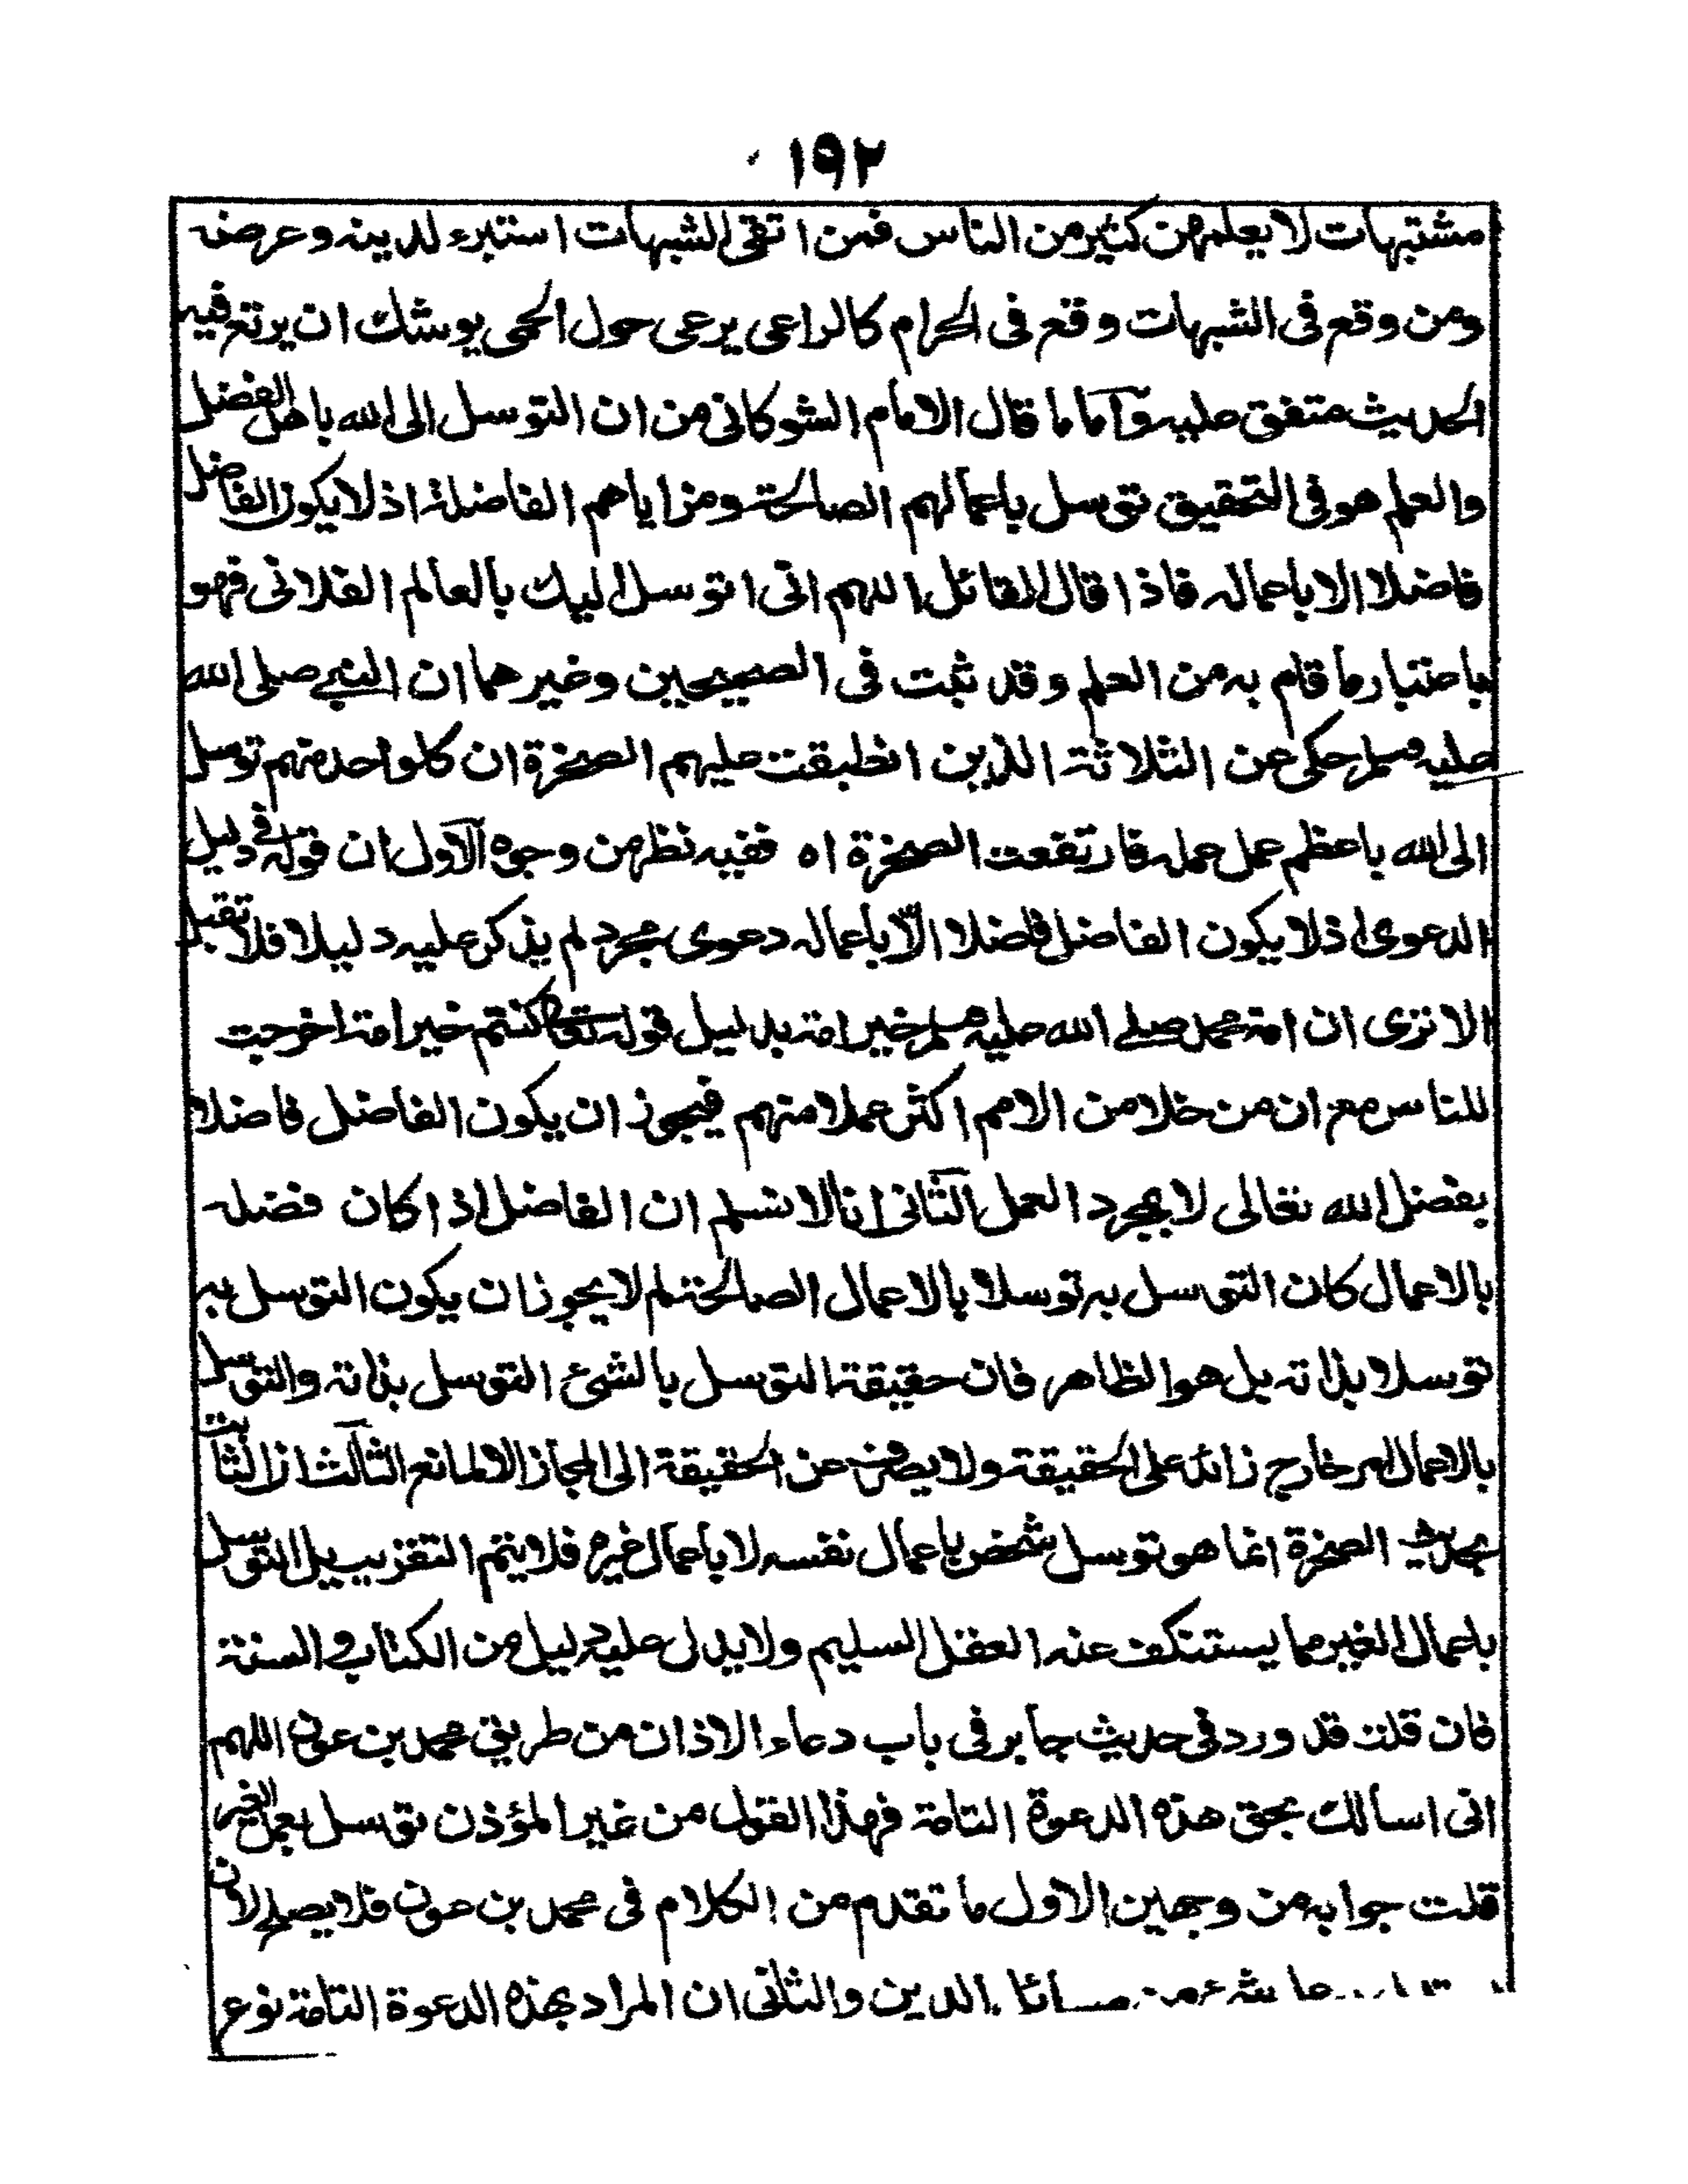 ١٩٢
مشتبهات لا يعلمهن كثير من الناس فمن اتقى الشبهات استبرء لدينه وعرضه
ومن وقع فى الشبهات وقع فى الحرام كالراعى يرعى حول الحمى يوشك ان يرتع فيه
الحديث متفق عليه وآما ما قال الامام الشوكانى من ان التوسل الى الله باهل الفضل
والعلم هو فى التحقيق توسل باعمالهم الصالحة ومزاياهم الفاضلة اذ لا يكون الفاضل
فاضلا الا باعماله فاذا قال القائل اللهم انى اتوسل اليك بالعالم الفلانى فهو
باعتبار ما قام به من العلم وقد ثبت فى الصحيحين وغيرهما ان النبي صلى الله
عليه وسلم حكى عن الثلاثة الذين انطبقت عليهم الصخرة ان كلواحد منهم توسل
الى الله باعظم عمل عمله فارتفعت الصخرة اه ففيه نظر من وجوه الآول ان قوله في دليل
الدعوى اذ لا يكون الفاضل فاضلا الّا باعماله دعوى مجرد لم يذكر عليه دليلا فلا تقبل
الا نرى ان امة محمد صلے الله عليه وسلم خير امة بدليل قوله تعالى كنتم خير امة اخرجت
للناس مع ان من خلا من الامم اكثر عملا منهم فيجوز ان يكون الفاضل فاضلا
بفضل الله تعالى لا بمجرد العمل الثآنى انا لا نسلم ان الفاضل اذا كان فضله
بالاعمال كان التوسل به توسلا بالاعمال الصالحة لم لا يجوز ان يكون التوسل به
توسلا بذاته بل هو الظاهر فان حقيقة التوسل بالشئ التوسل بذاته والتوسل
بالاعمال امر خارج زائد على الحقيقة ولا يصرف عن الحقيقة الى المجاز الا لمانع الثآلث ان الثابت
بحديث الصخرة انما هو توسل شخص باعمال نفسه لا باعمال غيره فلا يتم التقريب بل التوسل
باعمال الغير مما يستنكف عنه العقل السليم ولا يدل عليه دليل من الكتاب والسنة
فان قلت قد ورد فى حديث جابر فى باب دعاء الاذان من طريق محمد بن عوف اللهم
انى اسالك بحق هذه الدعوة التامة فهذا القول من غير المؤذن توسل بعمل الغير
قلت جوابه من وجهين الاول ما تقدم من الكلام فى محمد بن عوف فلا يصلح لان
الدين والثانى ان المراد بهذه الدعوة التامة نوع